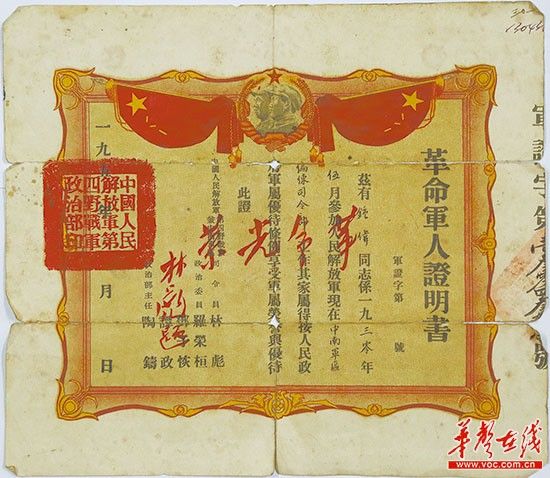 革命軍人證明書
軍證字第 號
茲有鍾偉同志係一九三零年
伍月參加人民解放軍現在中南軍區
工作其家屬得按人民政
府軍屬優待條例享受軍屬榮譽與優待
此證
革命光榮
中國人民解放軍
司令員 林彪
政治委員 羅榮桓
鄧子恢
譚政
政治部主任 陶鑄
一九五 年 月 日
中國人民
解放軍第
四野戰軍
政治部印
華聲在线
www.voc.com.cn